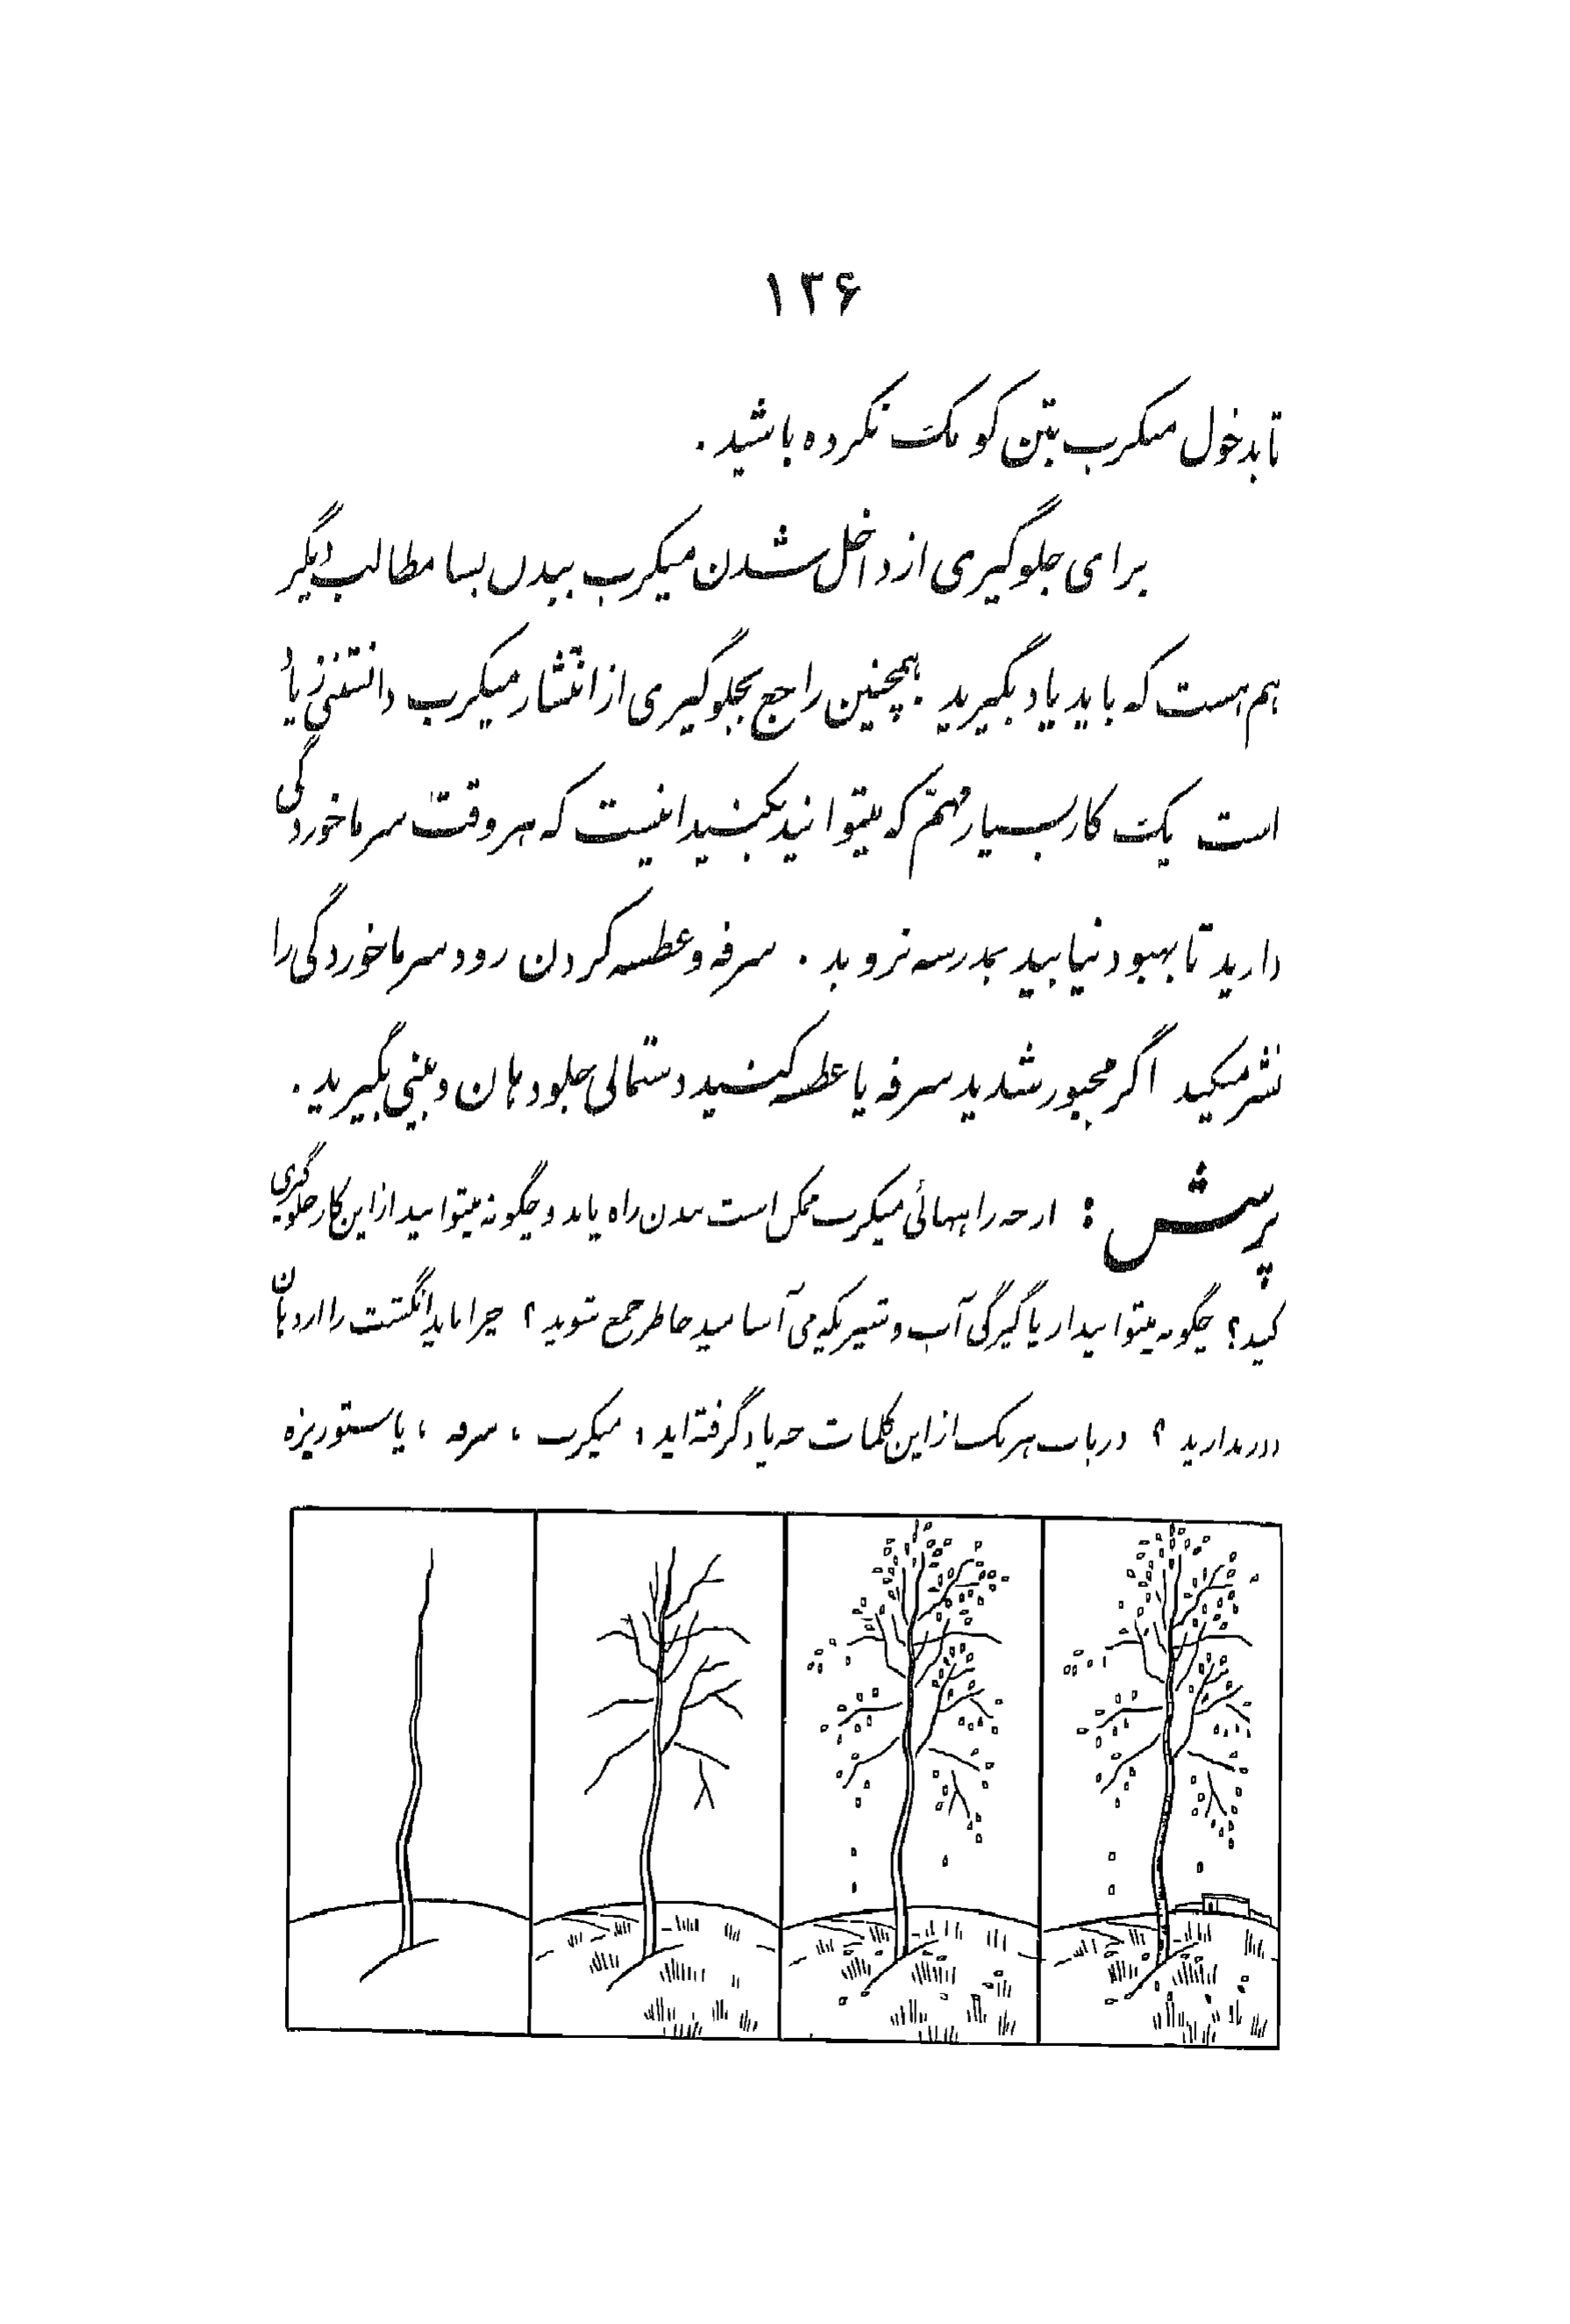 ۱۳۶
تا بدخول میکرب بتن کومک نکرده باشید .
برای جلوگیری از داخل شدن میکرب ببدن بسا مطالب دیگر
هم هست که باید یاد بگیرید . همچنین راجع بجلوگیری از انتشار میکرب دانستنی زیاد
است یک کار بسیار مهمّ که میتوانید بکنید اینست که هر وقت سرماخوردگی
دارید تا بهبود نیابید بمدرسه نروید . سرفه و عطسه کردن زود سرماخوردگی را
نشر میکند اگر مجبور شدید سرفه یا عطسه کنید دستمالی جلو دهان و بینی بگیرید .
پرسش : از چه راههائی میکرب ممکن است ببدن راه یابد و چگونه میتوانید از این کار جلوگیری
کنید ؟ چگونه میتوانید از پاکیزگی آب و شیریکه می آشامید خاطر جمع شوید ؟ چرا باید انگشت را از دهان
دور بدارید ؟ در باب هر یک از این کلمات چه یاد گرفته اید : میکرب ، سرفه ، پاستوریزه